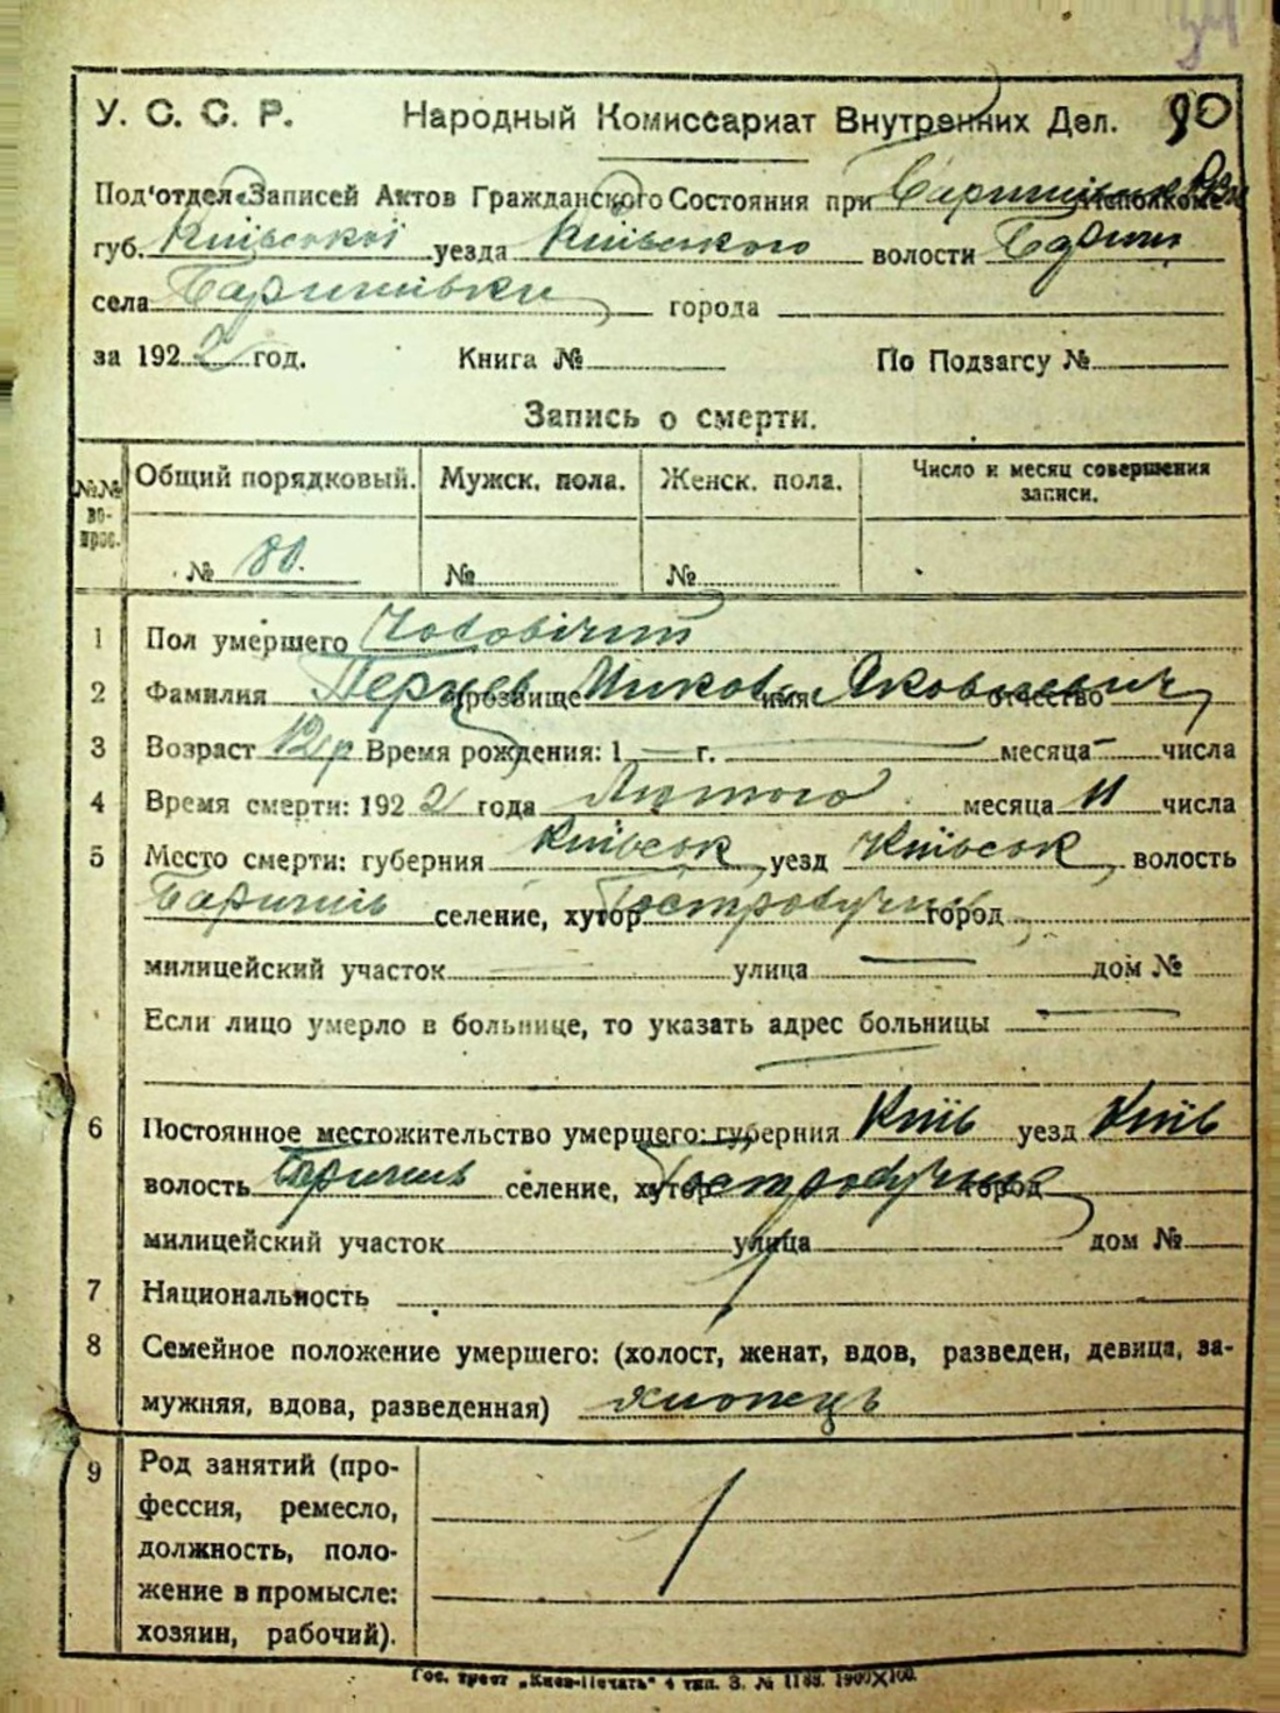 34
У. С. С. Р. Народный Комиссариат Внутренних Дел. 90
Под'отдел Записей Актов Гражданского Состояния при Баришівськ Исполкоме
губ. Київської уезда Київського волости Бариш
села Баришівки города
за 1922 год. Книга № По Подзагсу №
Запись о смерти.
№№ во-прос. Общий порядковый. Мужск. пола. Женск. пола. Число и месяц совершения записи.
№ 80. № №
1 Пол умершего Чоловічий
2 Фамилия прозвище Микола имя Яковлевич отчество
3 Возраст 12 р Время рождения: 1 — г. — месяца — числа
4 Время смерти: 1922 года Лютого месяца 11 числа
5 Место смерти: губерния Київськ уезд Київськ волость
Баришів селение, хутор город
милицейский участок — улица — дом №
Если лицо умерло в больнице, то указать адрес больницы —
6 Постоянное местожительство умершего: губерния Київ уезд Київ
волость Баришів селение, хутор город
милицейский участок улица дом №
7 Национальность
8 Семейное положение умершего: (холост, женат, вдов, разведен, девица, за-
мужняя, вдова, разведенная) хлопець
9 Род занятий (про-
фессия, ремесло,
должность, поло-
жение в промысле:
хозяин, рабочий).
Гос. трест „Киев-Печать" 4 тип. З. № 1188. 1900X100.